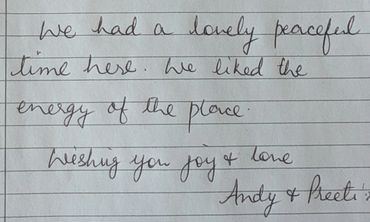 We had a lovely peaceful
time here. We liked the
energy of the place.
Wishing you joy & love
Andy & Preeti